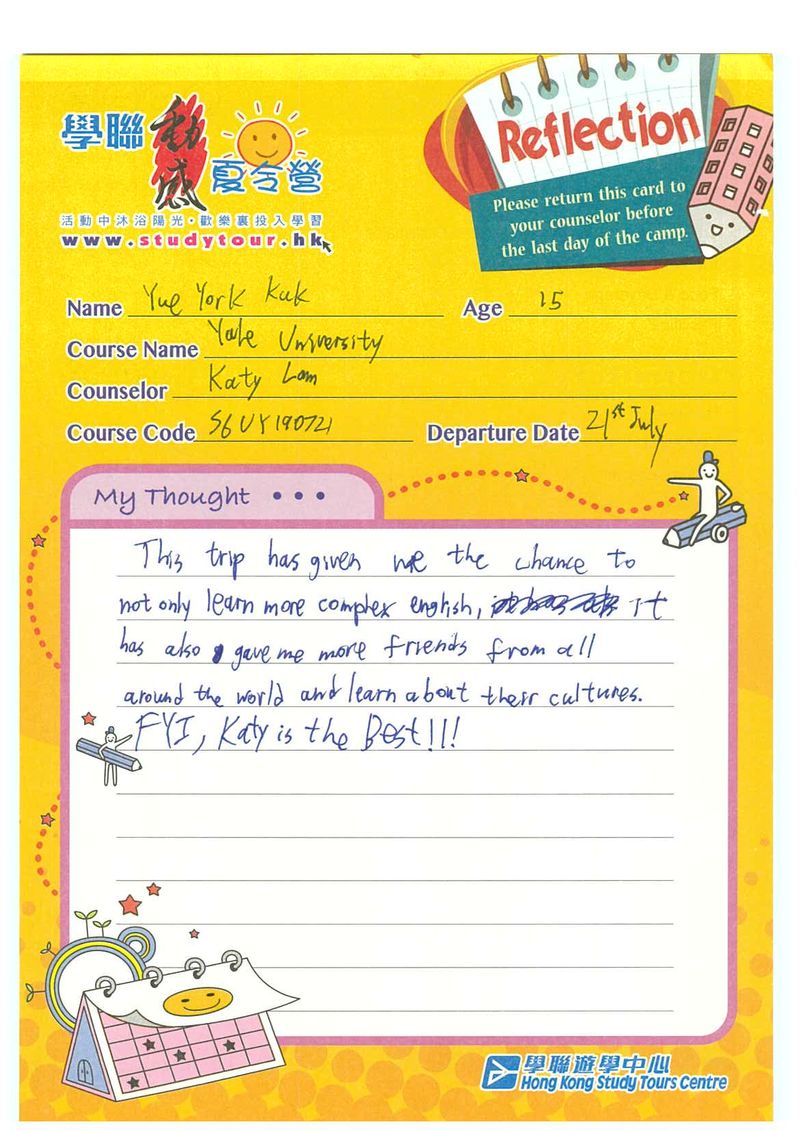 學聯 動感 夏令營
活動中沐浴陽光・歡樂裏投入學習
www.studytour.hk
Reflection
Please return this card to
your counselor before
the last day of the camp.
Name Yue York Kuk Age 15
Course Name Yale University
Counselor Katy Lam
Course Code S6UY190721 Departure Date 21st July
My Thought • • •
This trip has given me the chance to
not only learn more complex english, it
has also gave me more friends from all
around the world and learn about their cultures.
FYI, Katy is the Best!!!
學聯遊學中心
Hong Kong Study Tours Centre